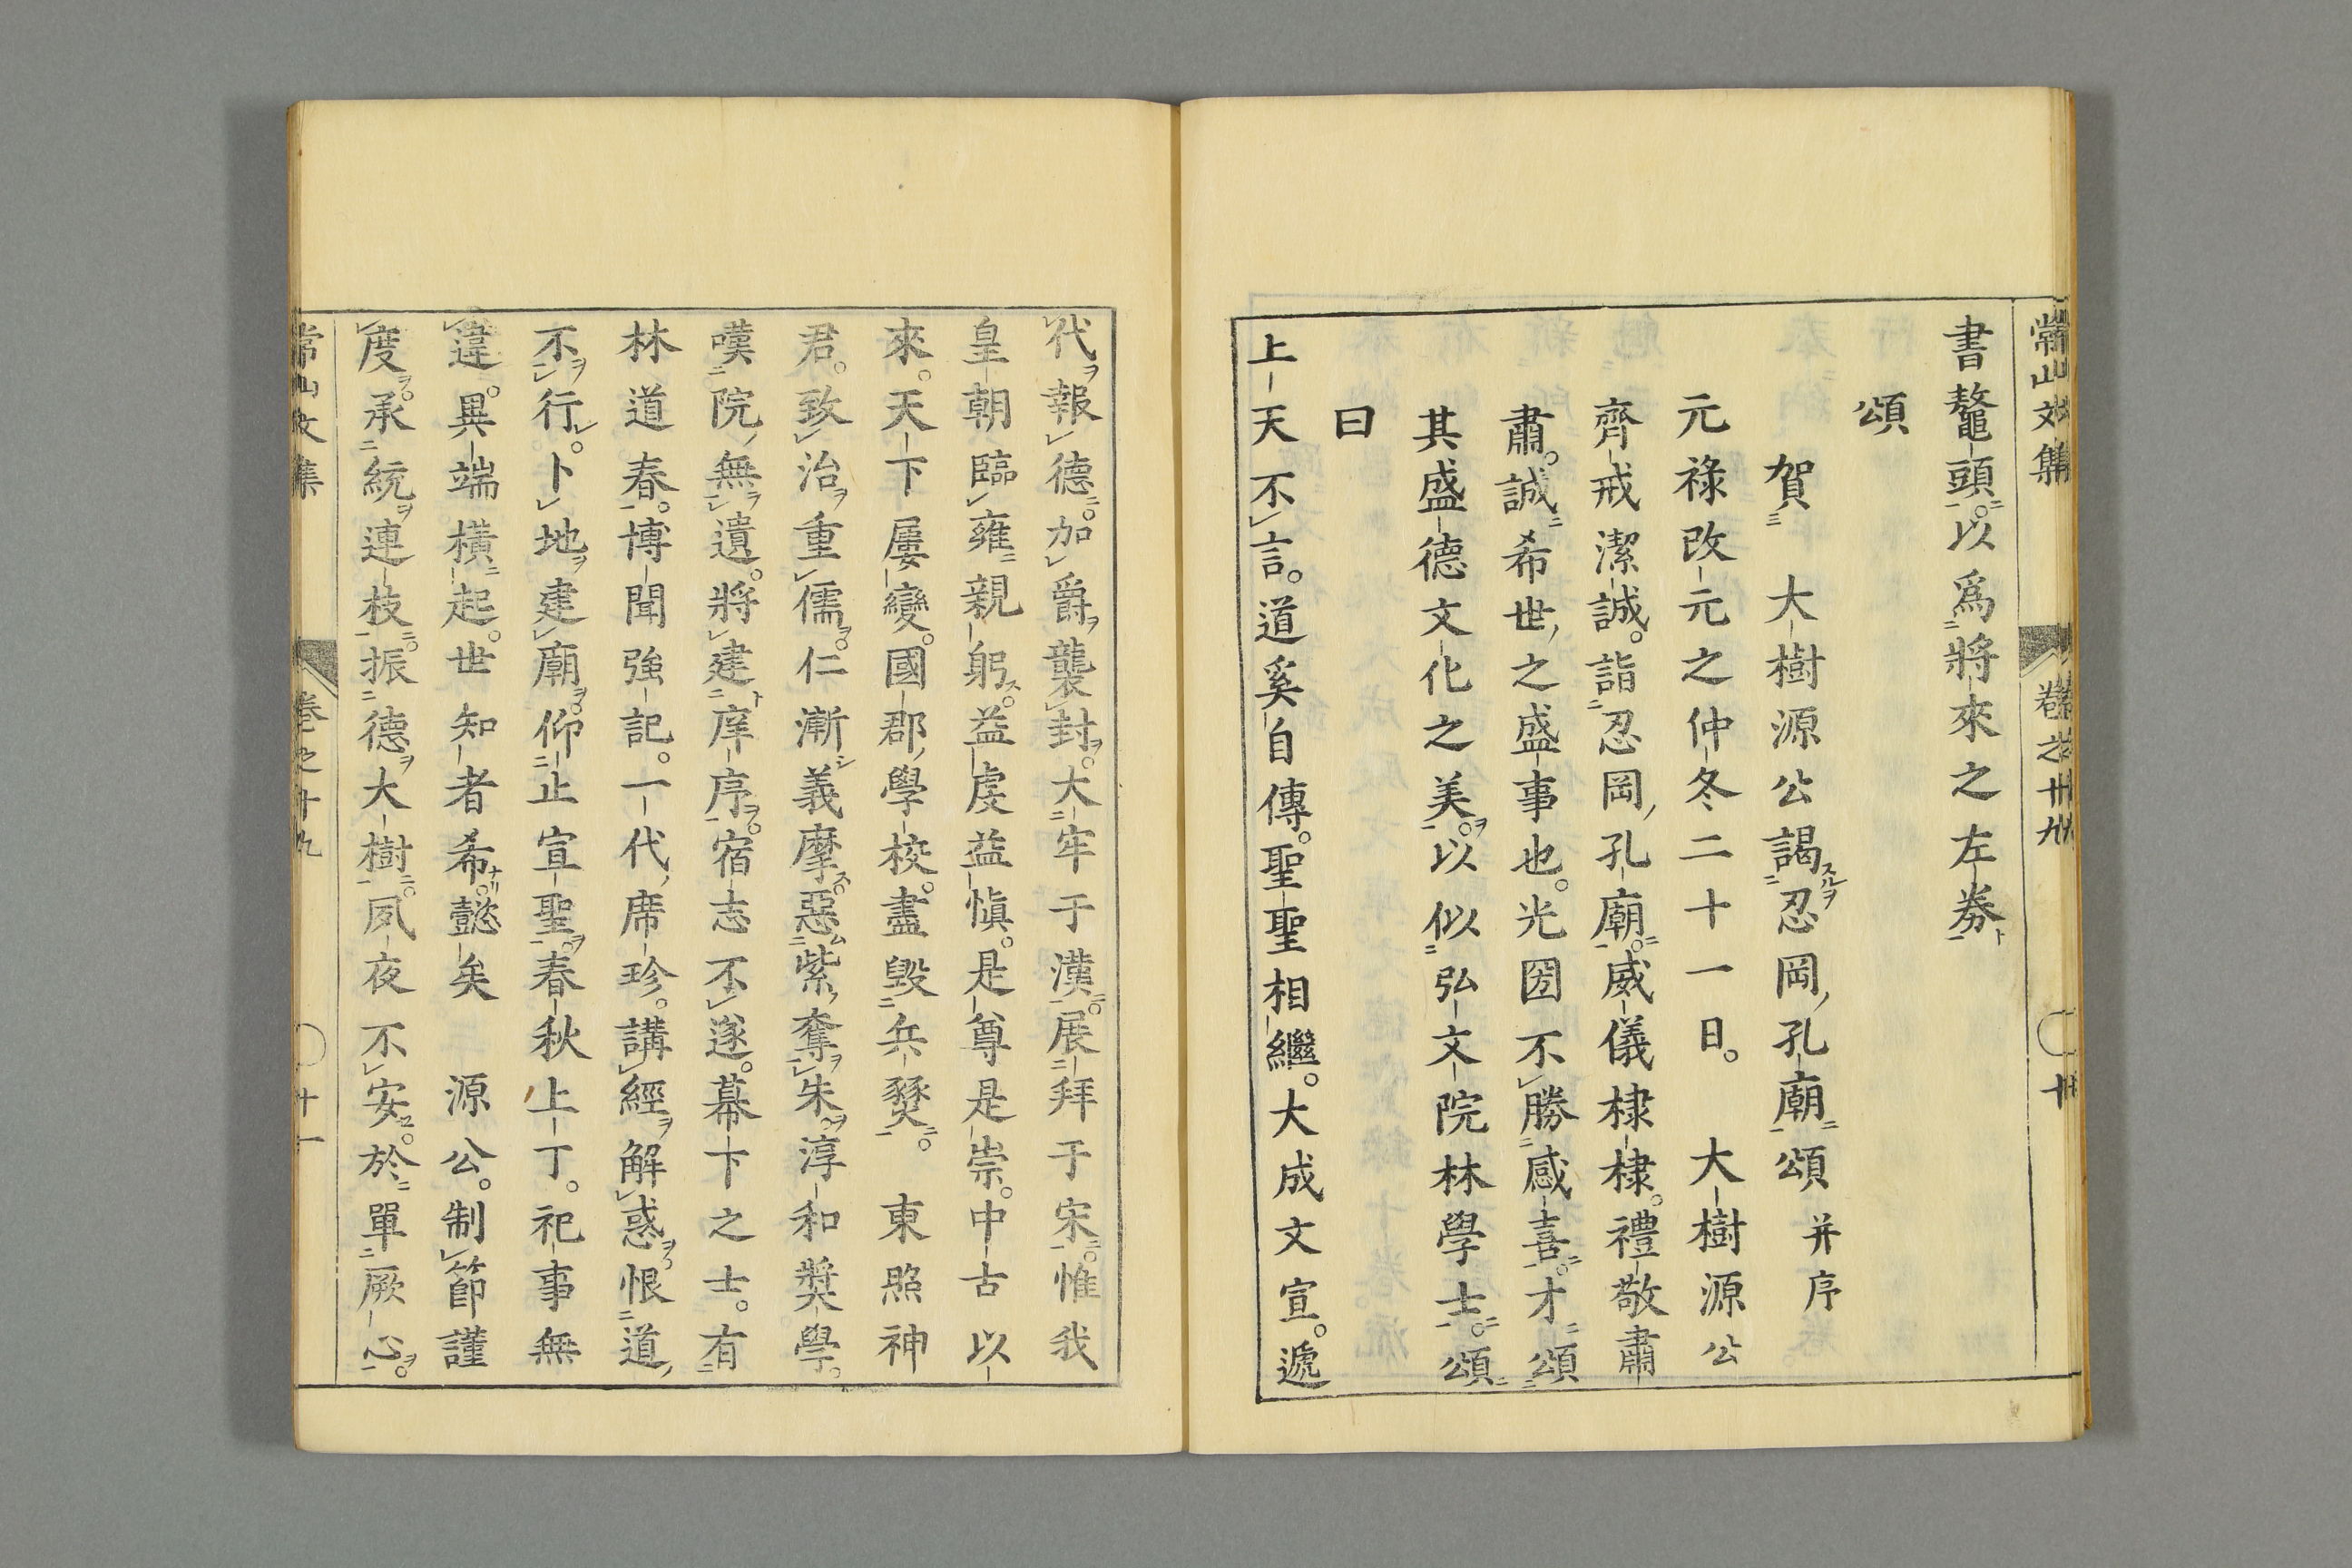 常山文集 卷之十九 十
書鼇頭以爲將來之左券
頌
賀 大樹源公謁忍岡孔廟頌并序
元祿改元之仲冬二十一日。 大樹源公
齊戒潔誠。詣忍岡孔廟。威儀棣棣。禮敬肅
肅。誠希世之盛事也。光圀不勝感喜。才頌
其盛德文化之美。以似弘文院林學士。頌
曰
上天不言。道奚自傳。聖聖相繼。大成文宣。遞
代報德。加爵襲封。大牢于漢。展拜于宋。惟我
皇朝臨雍親躬。益虔益愼。是尊是崇。中古以
來。天下屢變。國郡學校。盡毀兵燹。 東照神
君。致治重儒。仁漸義摩。惡紫奪朱。淳和奬學。
嘆院無遺。將建庠序。宿志不遂。幕下之士。有
林道春。博聞強記。一代席珍。講經解惑。恨道
不行。卜地建廟。仰止宣聖。春秋上丁。祀事無
違。異端橫起。世知者希。懿矣 源公。制節謹
度。承統連枝。振德大樹。夙夜不安。於單厥心。
常山文集 卷之十九 十一